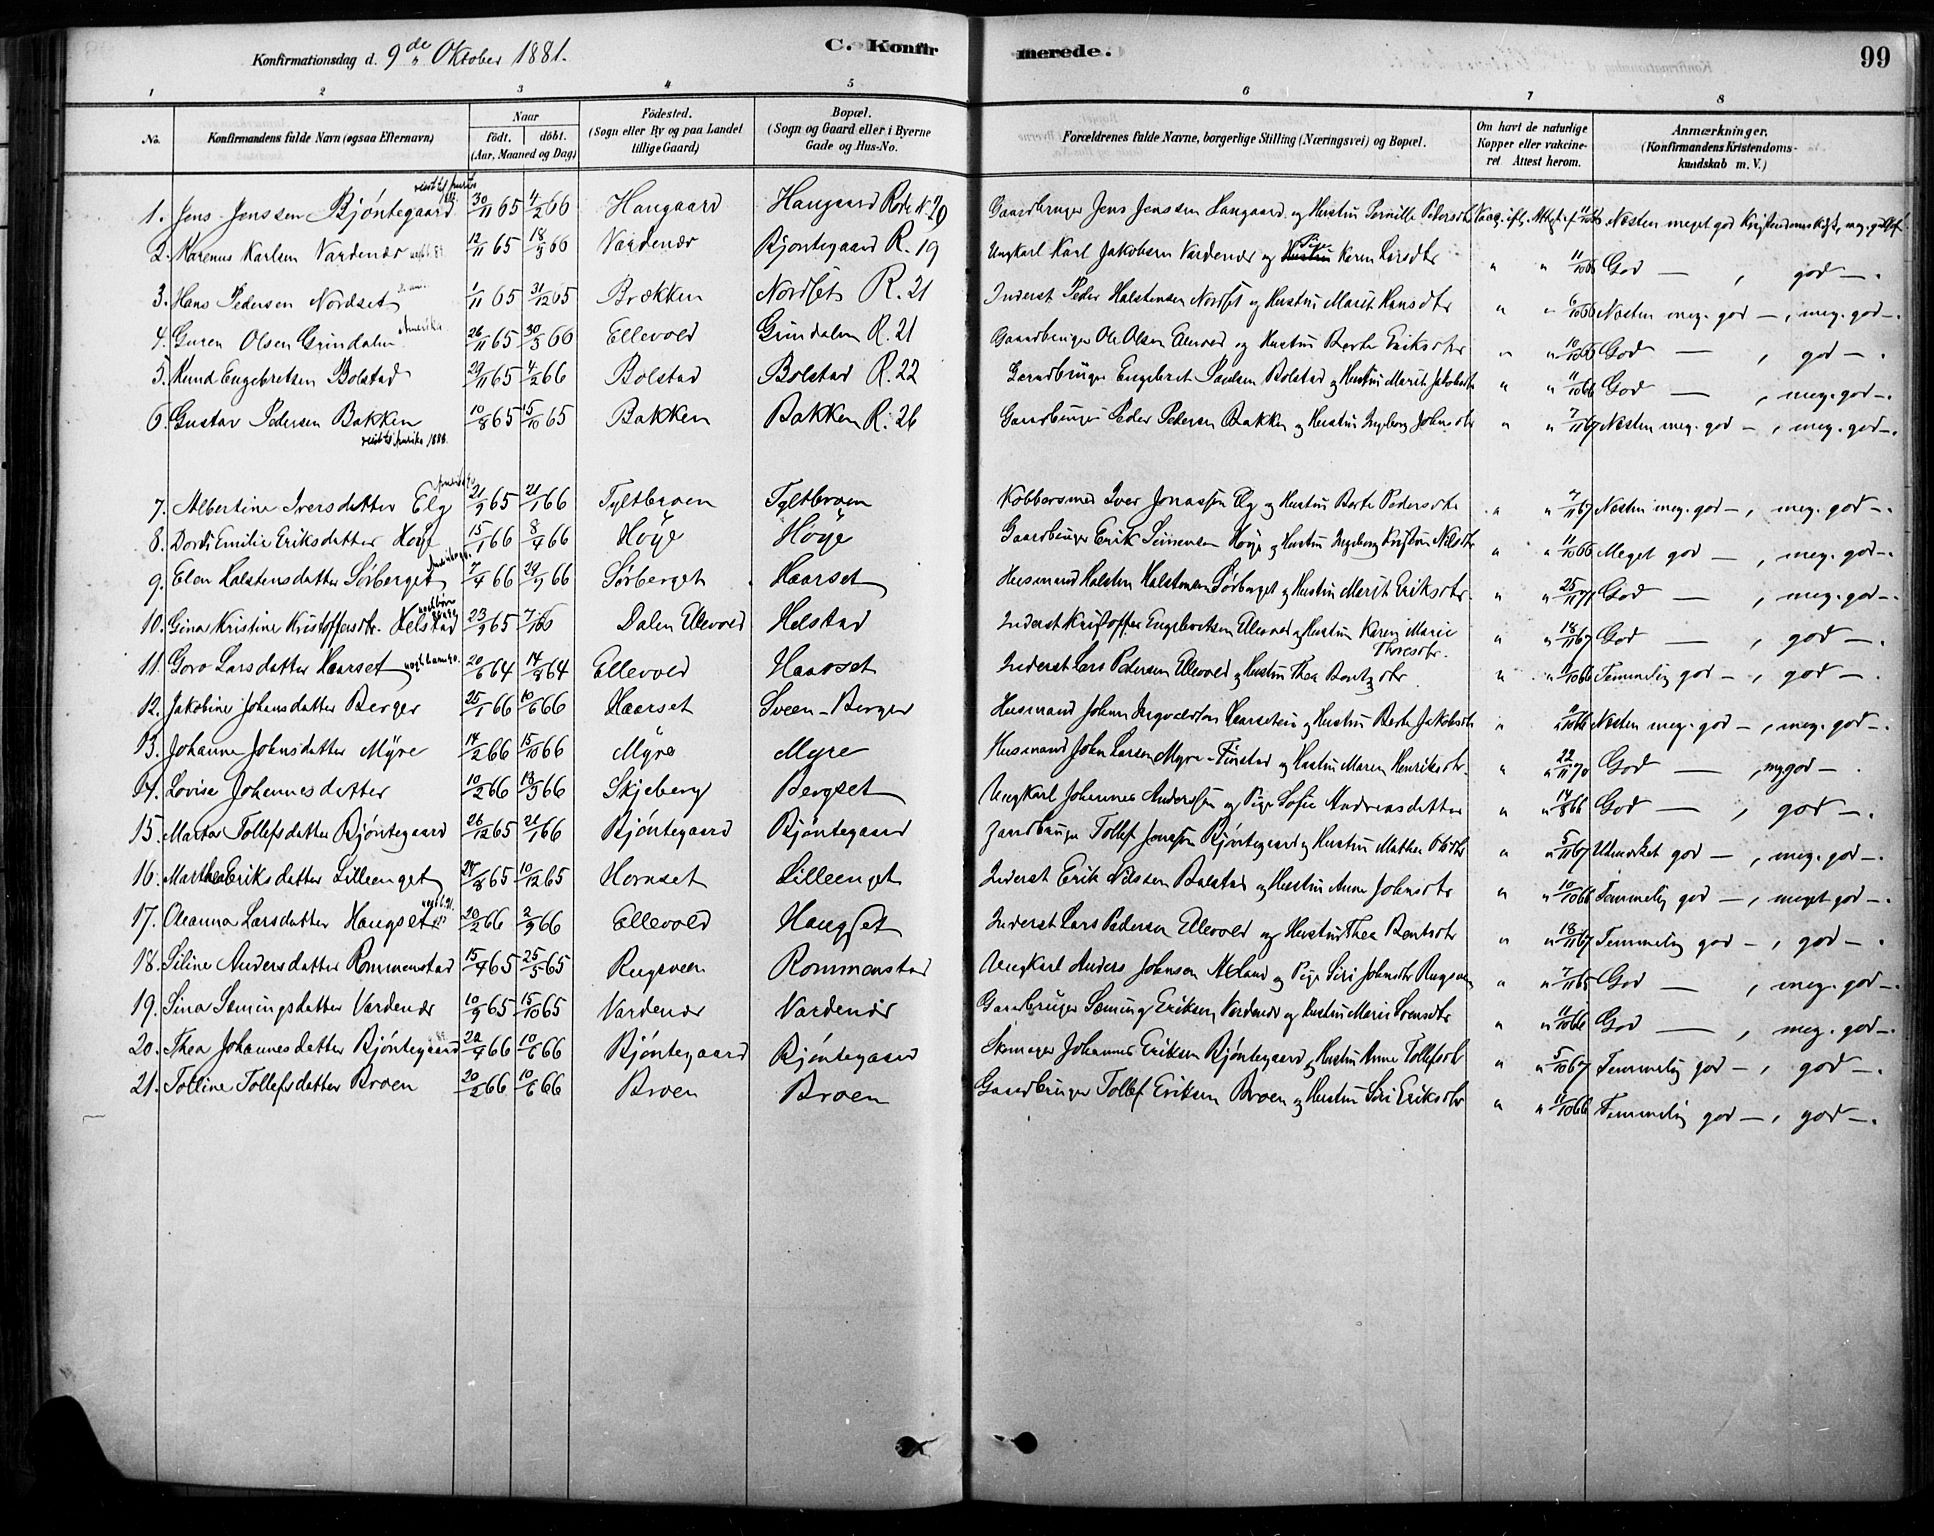 C. Konfirmerede.
99
Konfirmationsdag d. 9de Oktober 1881.
1 2 3 4 5 6 7 8
No. Konfirmandens fulde Navn (ogsaa Efternavn) Naar födt. döbt. (Aar, Maaned og Dag) Födested. (Sogn eller By og paa Landet tillige Gaard) Bopæl. (Sogn og Gaard eller i Byerne Gade og Hus-No. Forældrenes fulde Navne, borgerlige Stilling (Næringsvei) og Bopæl. Om havt de naturlige Kopper eller vakcineret Attest herom. Anmærkninger. (Konfirmandens Kristendomskundskab m. V.)
1. Jens Jenssen Bjöntegaard 30/11 65 4/2 66 Haugaard Haugaard Gaardbruger Jens Jenssen Haugaard og Hustru Pernille Pedersdtr Næsten meget god
2. Karenus Karlsen Vardenær 12/11 65 18/3 66 Vardenær Bjöntegaard R. 19 Ungkarl Karl Jakobsen Vardenær og Pige Karen Larsdtr " " 11/10 66 God — , god —.
3. Hans Pedersen Nordset 1/11 65 31/12 65 Brækken Nordset R. 21 Inderst Peder Halstensen Nordset og Hustru Marit Hansdtr " " 6/10 66 Næsten meg. god — , meg. god —.
4. Guren Olsen Grindalen Amerika 26/11 65 30/3 66 Ellevold Grindalen R. 21 Gaardbruger Ole Olsen Ellevold og Hustru Berte Eriksdtr " " God — , god —.
5. Knud Engebretsen Bolstad 29/11 65 4/2 66 Bolstad Bolstad R. 22 Gaardbruger Engebret Paulsen Bolstad og Hustru Marit Jakobsdtr " " 11/10 66 God — , meg. god —.
6. Gustav Pedersen Bakken 10/8 65 15/10 65 Bakken Bakken R. 26 Gaardbruger Peder Pedersen Bakken og Hustru Ingeborg Johnsdtr " " 7/11 67 Næsten meg. god — , meg. god —.
7. Albertine Iversdatter Elg 21/9 65 21/1 66 Tyltbroen Tyltbroen Kobbersmed Iver Jonassen Elg og Hustru Berte Pedersdtr " " 7/11 67 Næsten meg. god — , meg. god —.
8. Dordi Emilie Eriksdatter Höye 15/1 66 8/4 66 Höye Höye Gaardbruger Erik Simensen Höye og Hustru Ingeborg Kristine Nilsdtr " " 11/10 66 Meget god — , meg. god —.
9. Elen Halstensdatter Sörberget 7/4 66 29/9 66 Sörberget Haarset Husmand Halsten Halstensen Sörberget og Hustru Marit Eriksdtr " " 25/11 71 God — , meg. god —.
10. Gina Kristine Kristoffersdtr. Helstad 23/9 65 Dalen Ellevold Helstad Inderst Kristoffer Engebretsen Ellevold og Hustru Karen Marie Thoresdtr. " " 18/11 67 God — , god —.
11. Goro Larsdatter Haarset 20/6 64 14/8 64 Ellevold Haarset Inderst Lars Pedersen Ellevold og Hustru Thea Bentsdtr " " Temmelig god — , god —.
12. Jakobine Johansdatter Berger 25/1 66 10/6 66 Haarset Sveen-Berger Husmand Johan Ingvaldsen Haarseteie og Hustru Berte Jakobsdtr " " Næsten meg. god — , meg. god —.
13. Johanne Johnsdatter Myre 14/2 66 15/10 66 Myre Myre Husmand John Larsen Myre-Finstad og Hustru Maren Henriksdtr. " " 22/11 70 God — , mg god —.
14. Lovise Johannesdatter 10/2 66 18/3 66 Skjeberg Bergset Ungkarl Johannes Anderssen og Pige Sofie Andreasdatter " " 14/8 66 God — , god —.
15. Martha Tollefsdatter Bjöntegaard 26/12 65 21/1 66 Bjöntegaard Bjöntegaard Gaardbruger Tollef Jonassen Bjöntegaard og Hustru Mathea Olsdtr " " 5/11 67 Udmærket god — , meg. god —.
16. Marthea Eriksdatter Lilleenget 24/8 65 10/12 65 Hornset Lilleenget Inderst Erik Nilssen Bolstad og Hustru Anne Johnsdtr " " 10/10 66 Temmelig god — , meget god —.
17. Oleanna Larsdatter Haugset 20/2 66 2/9 66 Ellevold Haugset Inderst Lars Pedersen Ellevold og Hustru Thea Bentsdtr " " 18/11 67 Temmelig god — , god —.
18. Siline Andersdatter Rommenstad 15/4 65 25/5 65 Rugsveen Rommenstad Ungkarl Anders Johnsen Aaland og Pige Siri Johnsdtr Rugsveen " " 7/11 65 God — , meg. god —.
19. Sina Sæmingsdatter Vardenær 10/9 65 15/10 65 Vardenær Vardenær Gaardbruger Sæming Eriksen Vardenær og Hustru Marie Svensdtr " " 11/10 66 God — , meg. god —.
20. Thea Johannesdatter Bjöntegaard 28/4 66 10/6 66 Bjöntegaard Bjöntegaard Skomager Johannes Eriksen Bjöntegaard og Hustru Anne Tollefsdtr " " 5/10 67 Temmelig god — , god —.
21. Tolline Tollefsdatter Broen 20/2 66 10/6 66 Broen Broen Gaardbruger Tollef Eriksen Broen og Hustru Siri Eriksdtr " " 11/10 66 Temmelig god — , god —.